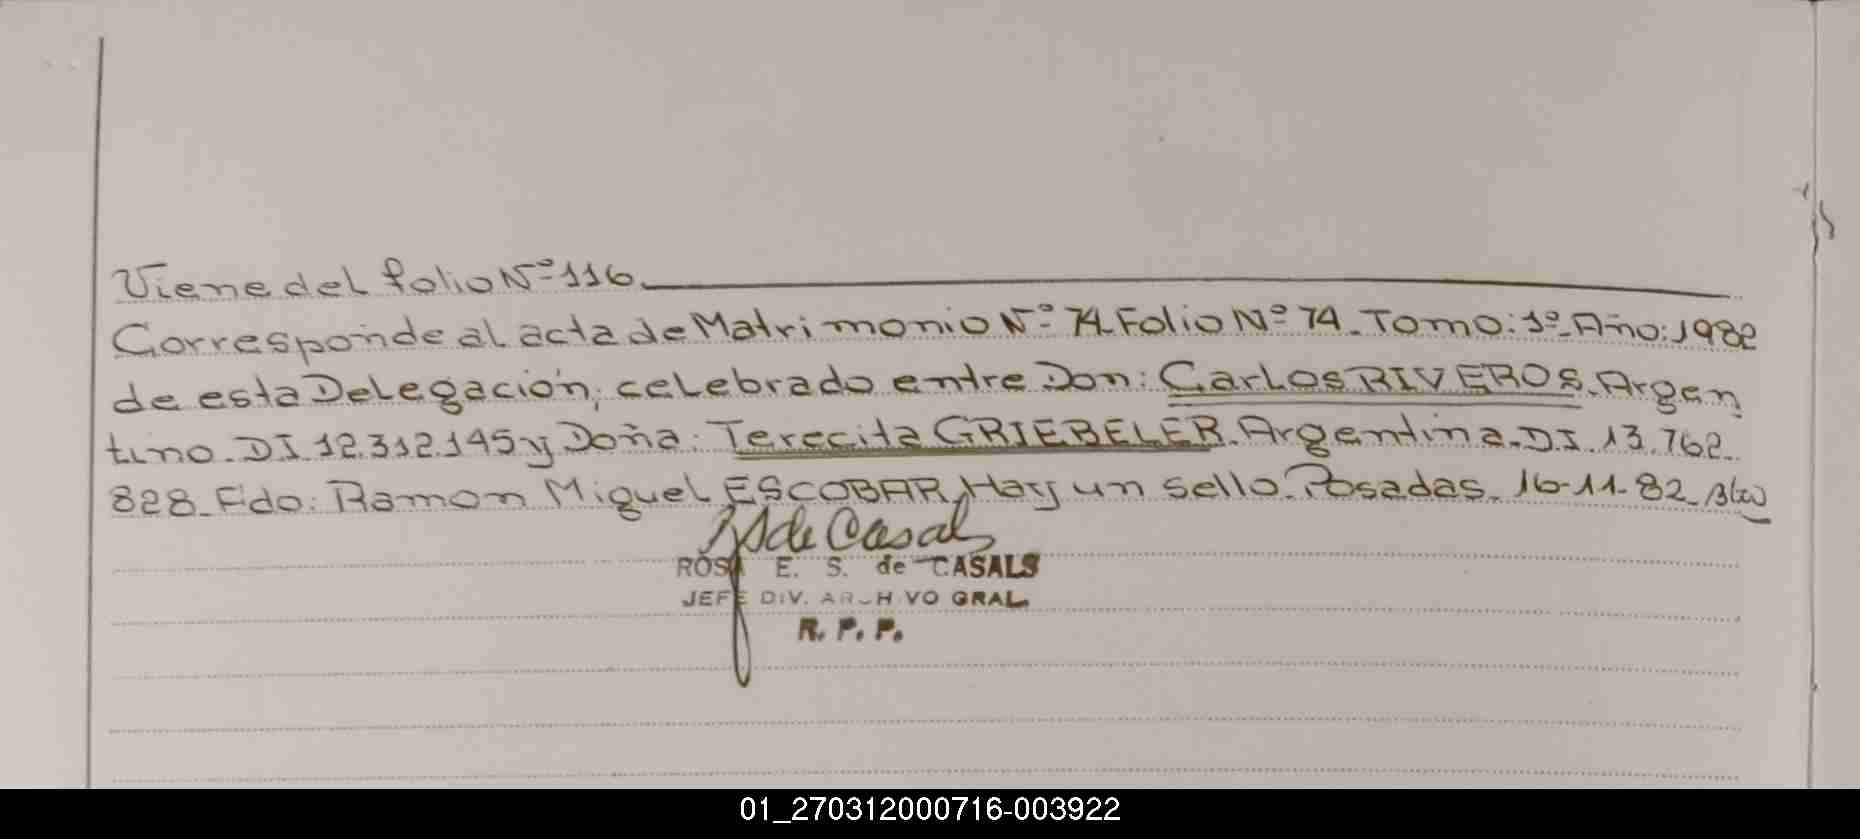 Viene del folio Nº 116.
Corresponde al acta de Matrimonio Nº 74. Folio Nº 74. Tomo: 1º. Año: 1982
de esta Delegación, celebrado entre Don: Carlos RIVEROS. Argen
tino. DI. 12.312.145 y Doña: Terecita GRIEBELER. Argentina. DI. 13.762.
828. Fdo: Ramon Miguel ESCOBAR. Hay un sello. Posadas. 16-11-82.
de Casals
ROSA E. S. de CASALS
JEFE DIV. ARCHIVO GRAL.
R. P. P.
01_270312000716-003922